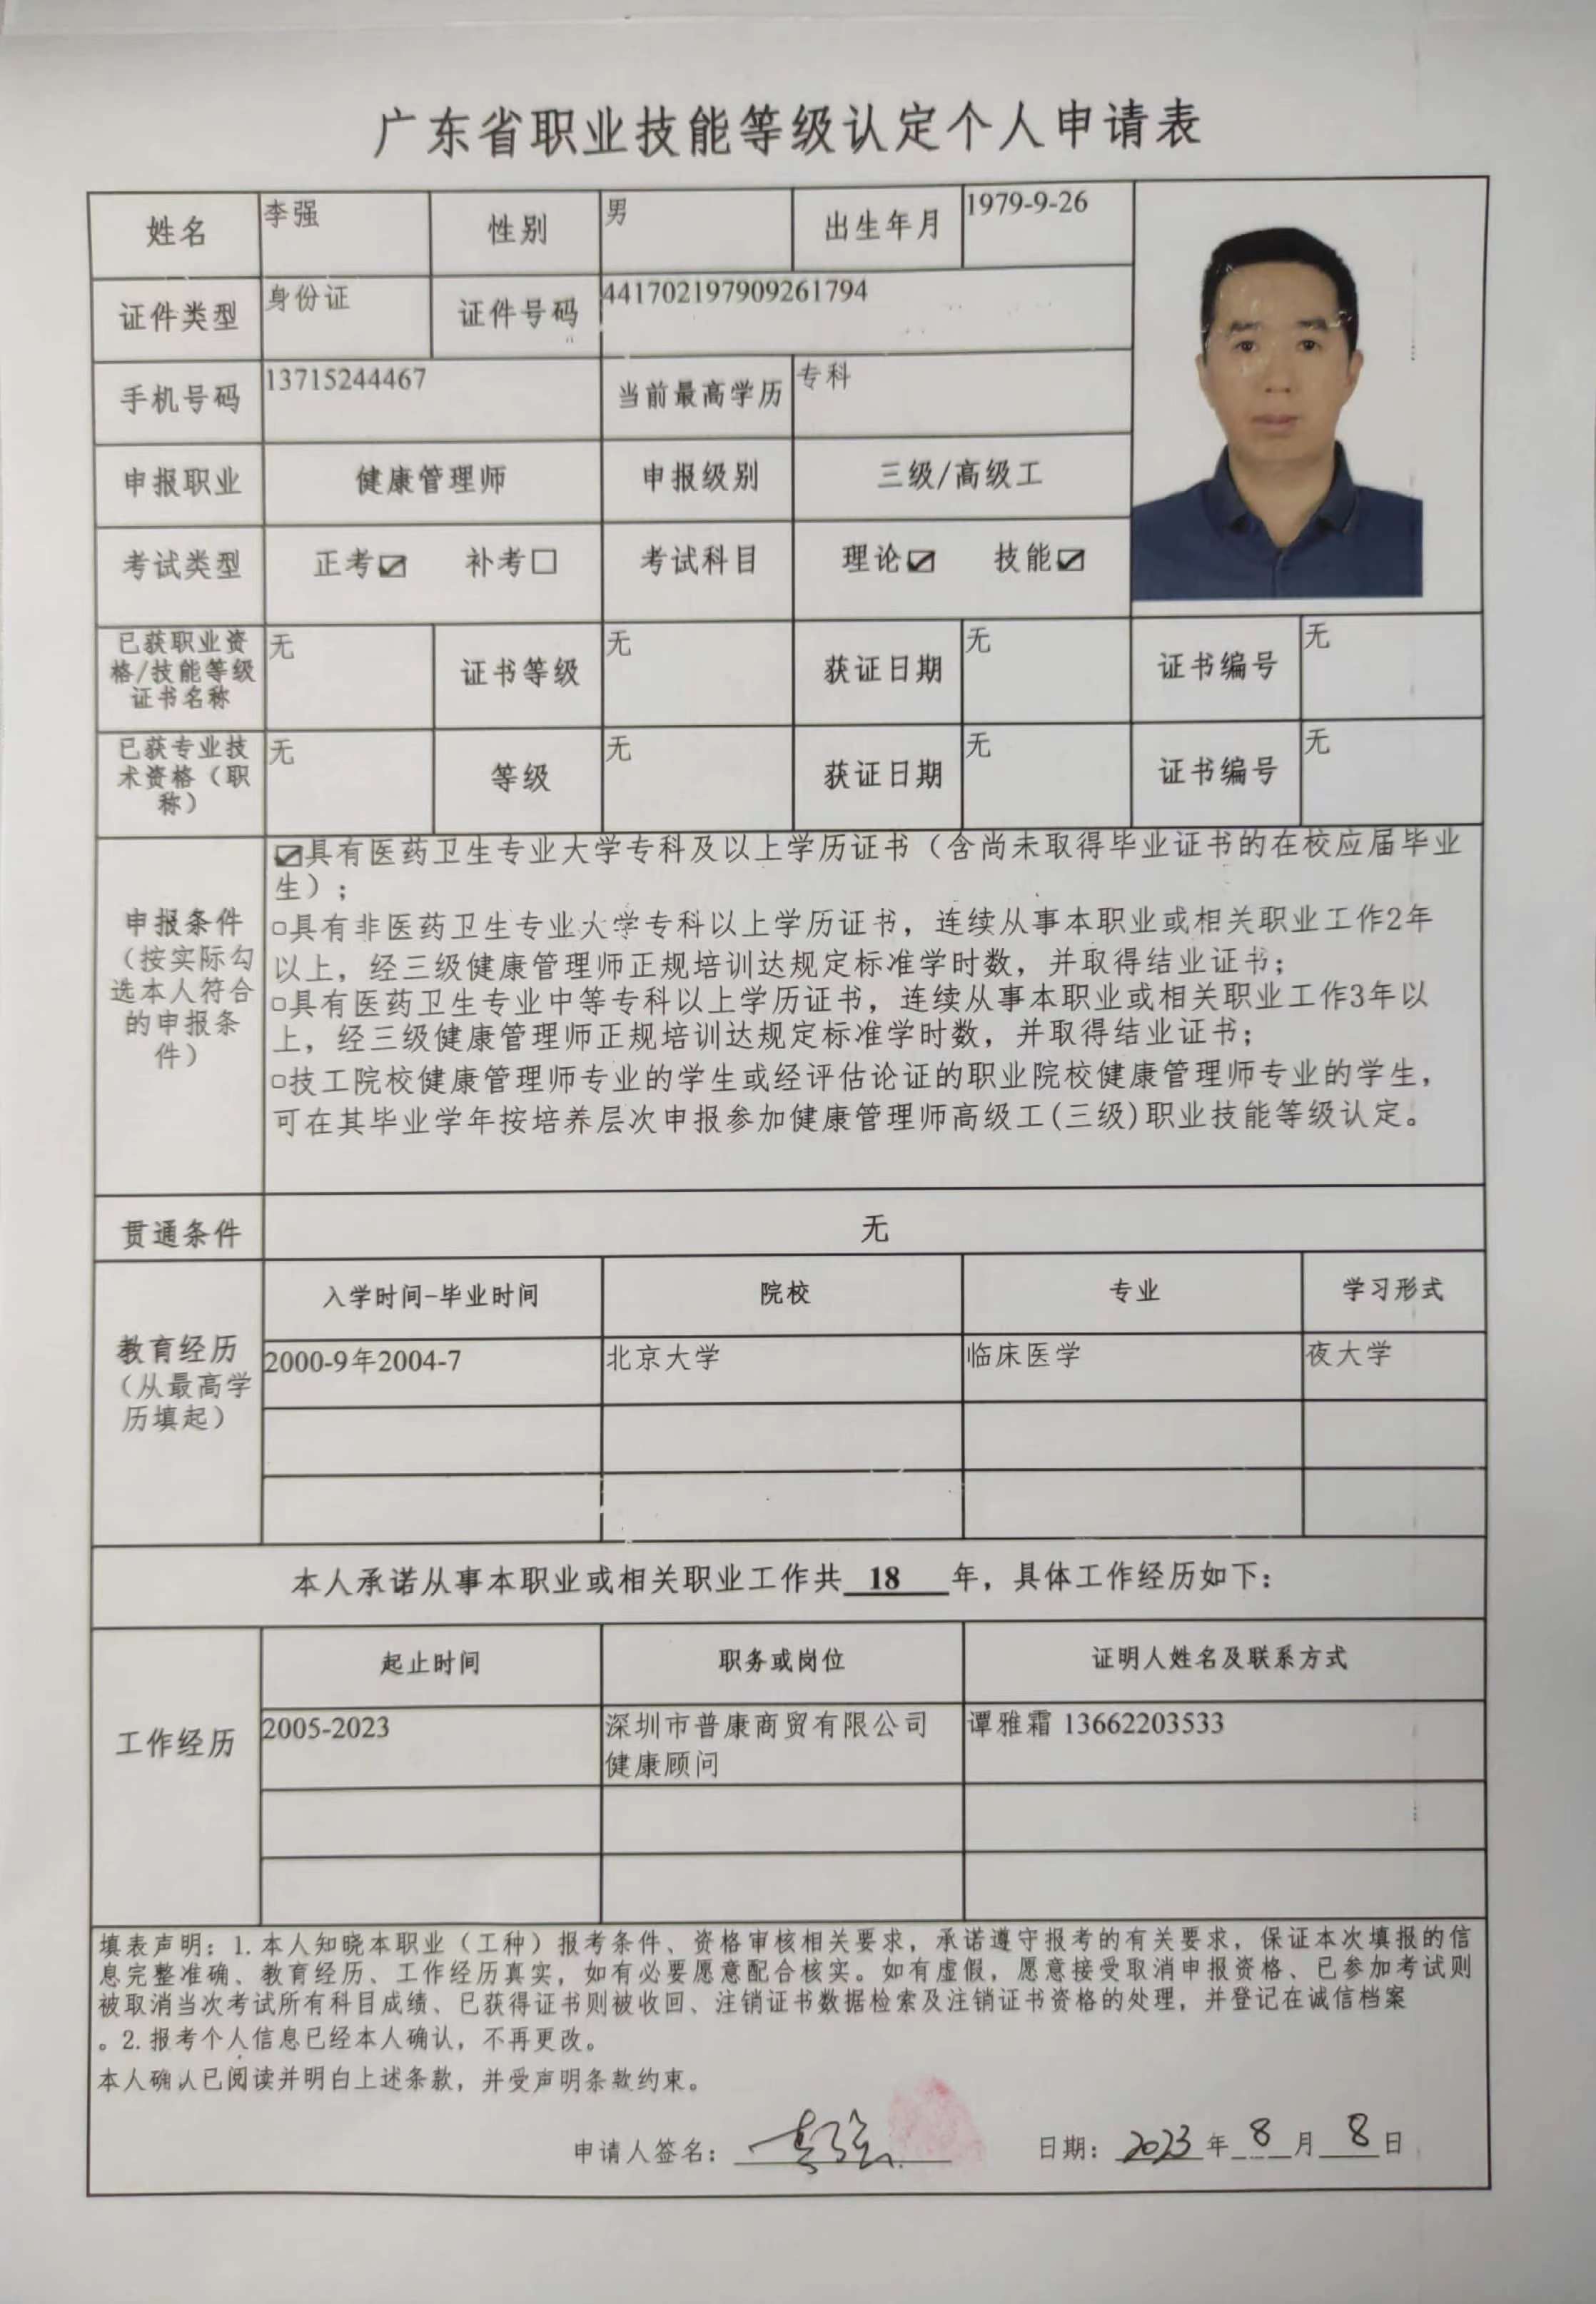 广东省职业技能等级认定个人申请表
姓名 李强 性别 男 出生年月 1979-9-26
证件类型 身份证 证件号码 441702197909261794
手机号码 13715244467 当前最高学历 专科
申报职业 健康管理师 申报级别 三级/高级工
考试类型 正考☑ 补考☐ 考试科目 理论☑ 技能☑
已获职业资
格/技能等级
证书名称
无 证书等级 无 获证日期 无 证书编号 无
已获专业技
术资格（职
称）
无 等级 无 获证日期 无 证书编号 无
申报条件
（按实际勾
选本人符合
的申报条
件）
☑具有医药卫生专业大学专科及以上学历证书（含尚未取得毕业证书的在校应届毕业
生）；
□具有非医药卫生专业大学专科以上学历证书，连续从事本职业或相关职业工作2年
以上，经三级健康管理师正规培训达规定标准学时数，并取得结业证书；
□具有医药卫生专业中等专科以上学历证书，连续从事本职业或相关职业工作3年以
上，经三级健康管理师正规培训达规定标准学时数，并取得结业证书；
□技工院校健康管理师专业的学生或经评估论证的职业院校健康管理师专业的学生，
可在其毕业学年按培养层次申报参加健康管理师高级工(三级)职业技能等级认定。
贯通条件 无
教育经历
（从最高学
历填起）
入学时间-毕业时间 院校 专业 学习形式
2000-9年2004-7 北京大学 临床医学 夜大学
本人承诺从事本职业或相关职业工作共 18 年，具体工作经历如下：
工作经历
起止时间 职务或岗位 证明人姓名及联系方式
2005-2023 深圳市普康商贸有限公司 谭雅霜 13662203533
健康顾问
填表声明：1.本人知晓本职业（工种）报考条件、资格审核相关要求，承诺遵守报考的有关要求，保证本次填报的信
息完整准确、教育经历、工作经历真实，如有必要愿意配合核实。如有虚假，愿意接受取消申报资格、已参加考试则
被取消当次考试所有科目成绩、已获得证书则被收回、注销证书数据检索及注销证书资格的处理，并登记在诚信档案
。2.报考个人信息已经本人确认，不再更改。
本人确认已阅读并明白上述条款，并受声明条款约束。
申请人签名： 李强 日期：2023年8月8日